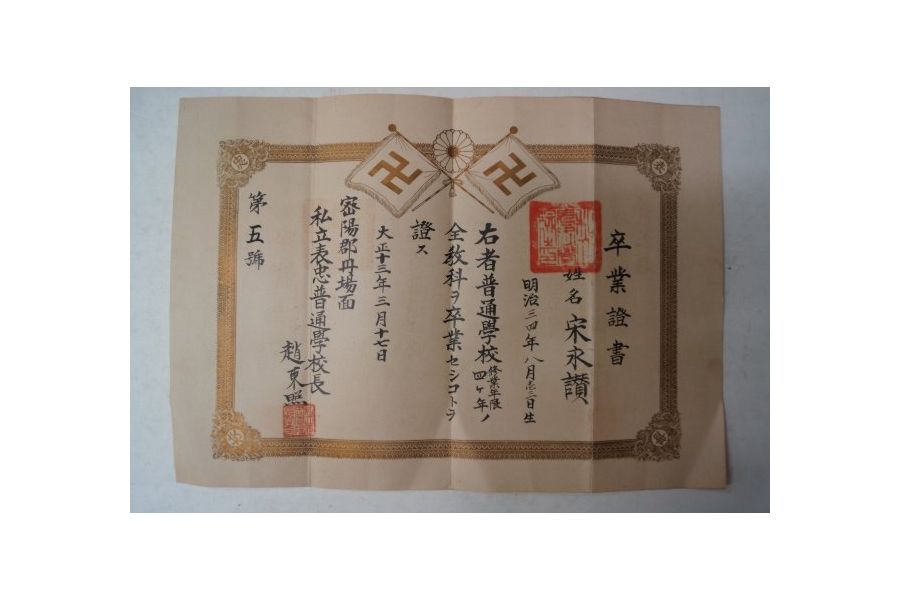 卒業證書
姓名 宋永讚
明治三四年八月圭三日生
右者普通學校修業年限四ヶ年ノ
全教科ヲ卒業セシコトヲ
證ス
大正十三年三月十七日
密陽郡丹場面
私立表忠普通學校長
趙東熙
第五號